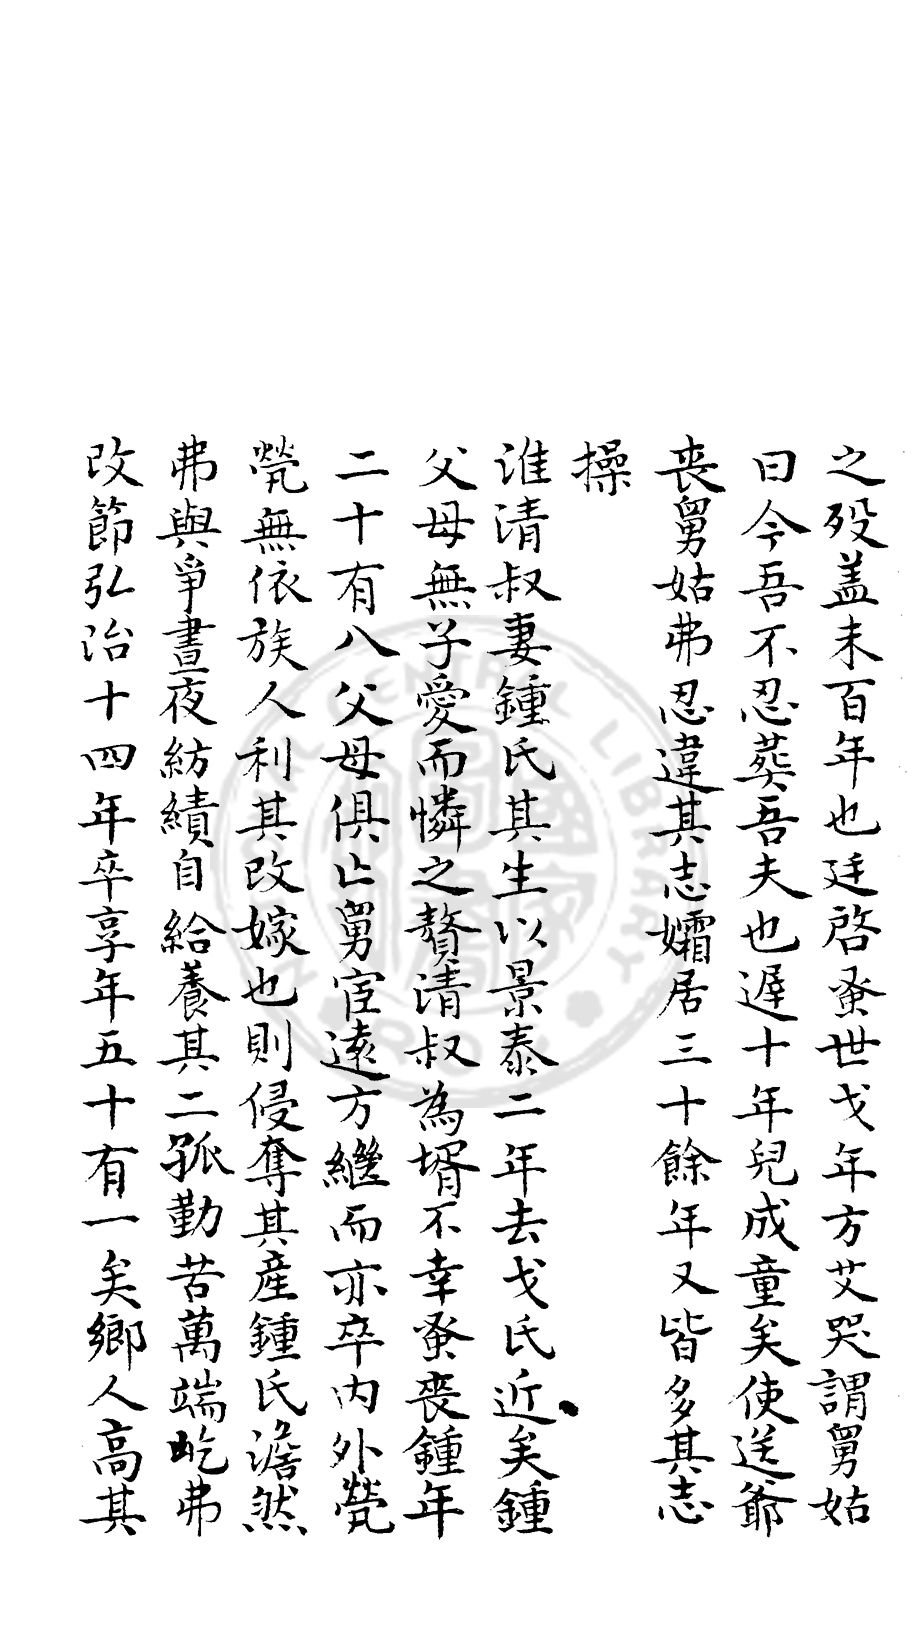 之歿盖未百年也廷啓蚤世戈年方艾哭謂舅姑
曰今吾不忍葬吾夫也遲十年兒成童矣使送爺
喪舅姑弗忍違其志孀居三十餘年又皆多其志
操
淮清叔妻鍾氏其生以景泰二年去戈氏近矣鍾
父母無子愛而憐之贅清叔為壻不幸蚤喪鍾年
二十有八父母俱亾舅宦遠方繼而亦卒内外煢
煢無依族人利其改嫁也則侵奪其産鍾氏澹然
弗與爭晝夜紡績自給養其二孤勤苦萬端屹弗
改節弘治十四年卒享年五十有一矣鄉人高其
NATIONAL CENTRAL LIBRARY